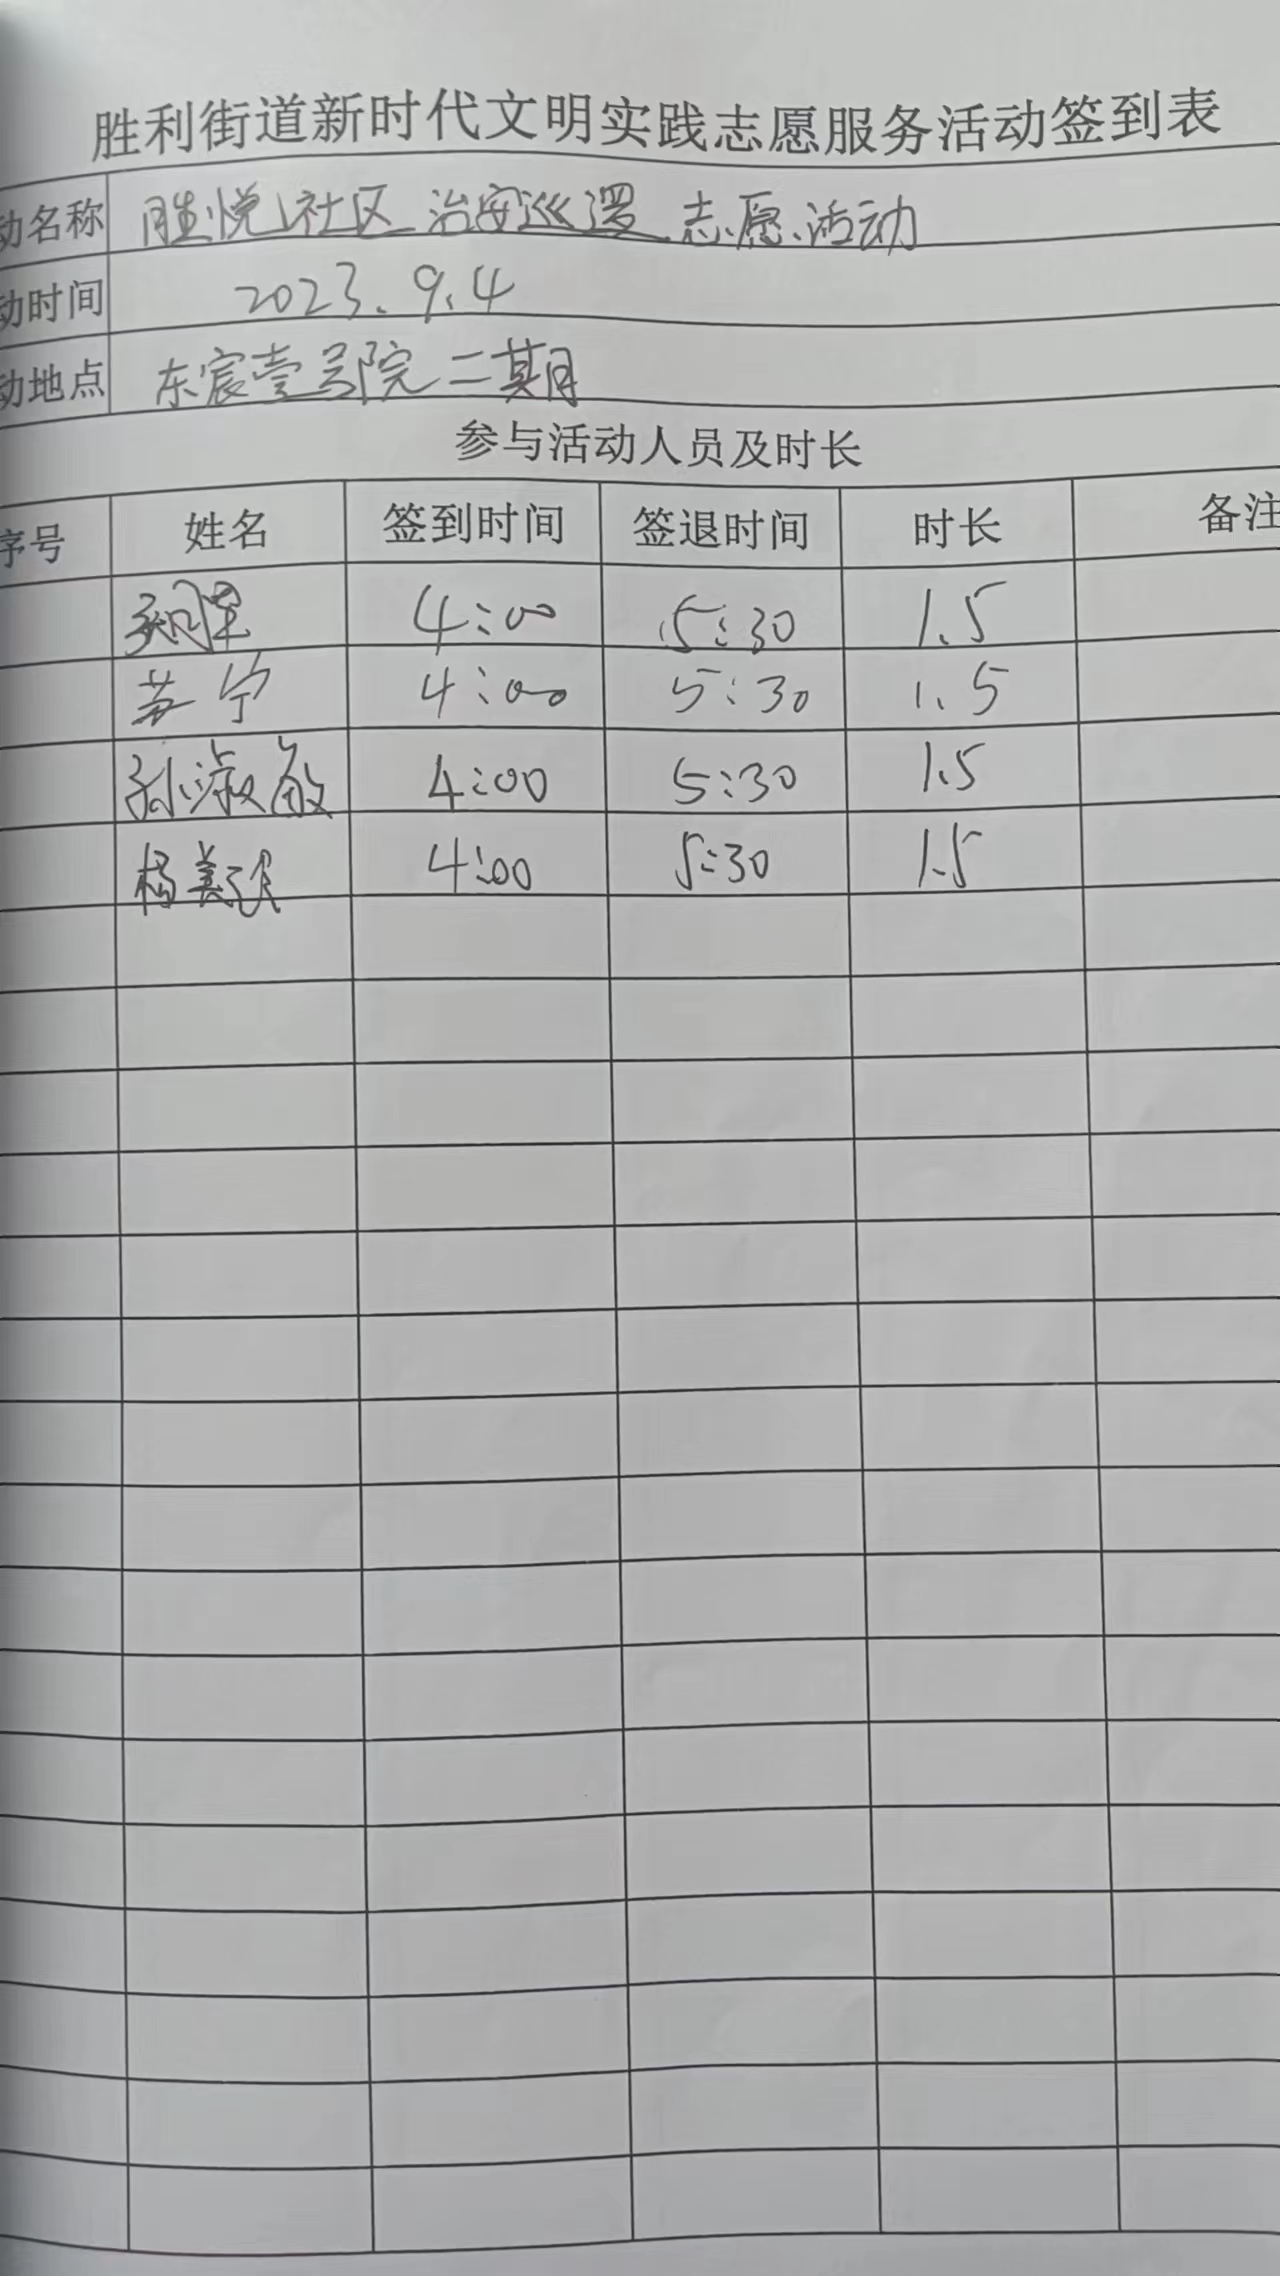 胜利街道新时代文明实践志愿服务活动签到表
动名称 胜悦社区治安巡逻志愿活动
动时间 2023.9.4
动地点 东宸壹号院二期
参与活动人员及时长
序号 姓名 签到时间 签退时间 时长 备注
4:00 5:30 1.5
苏宁 4:00 5:30 1.5
孙淑敏 4:00 5:30 1.5
杨美 4:00 5:30 1.5